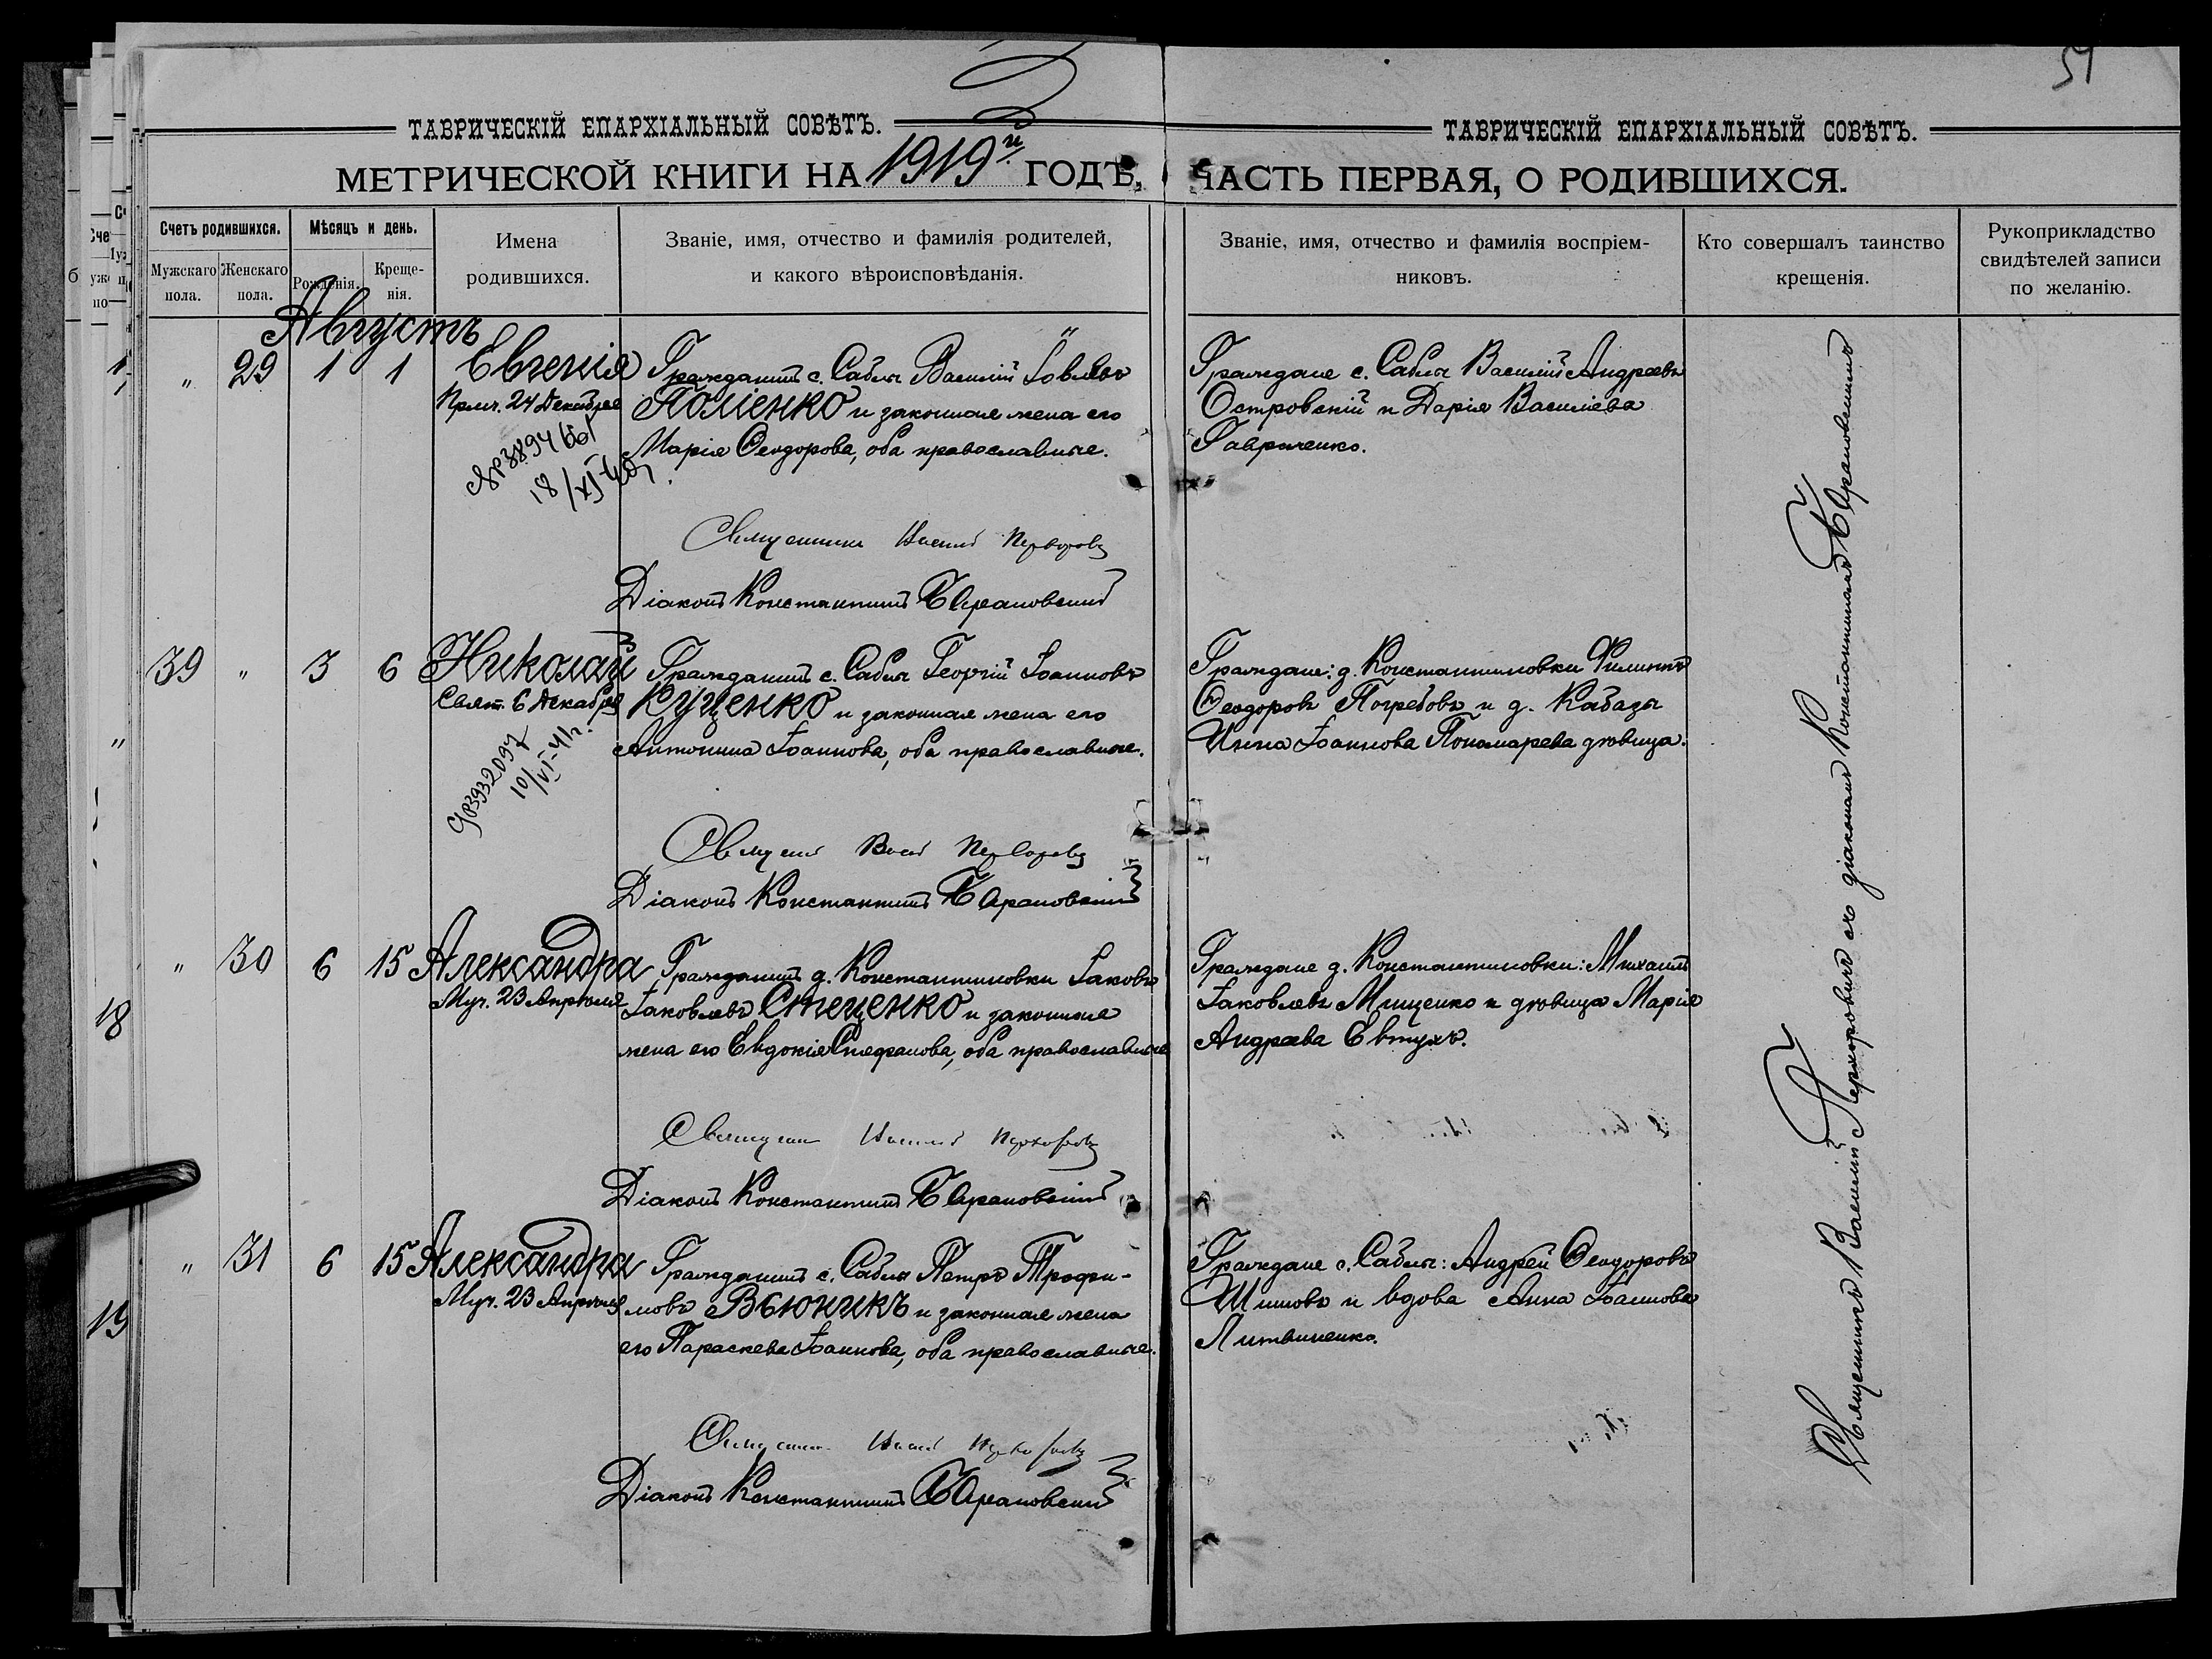 54
ТАВРИЧЕСКІЙ ЕПАРХІАЛЬНЫЙ СОВѢТЪ.
ТАВРИЧЕСКІЙ ЕПАРХІАЛЬНЫЙ СОВѢТЪ.
МЕТРИЧЕСКОЙ КНИГИ НА 1919й ГОДЪ, ЧАСТЬ ПЕРВАЯ, О РОДИВШИХСЯ.
Счетъ родившихся.
Мужскаго пола.
Женскаго пола.
Мѣсяцъ и день.
Рожденія.
Крещенія.
Имена
родившихся.
Званіе, имя, отчество и фамилія родителей,
и какого вѣроисповѣданія.
Званіе, имя, отчество и фамилія воспріем-
никовъ.
Кто совершалъ таинство
крещенія.
Рукоприкладство
свидѣтелей записи
по желанію.
Августъ
" 29 1 1
Евгенія
Прмч. 24 Декабря
18/XI-
Гражданинъ с. Саблы Василій Іовлевъ
Поліенко и законная жена его
Марія Ѳеодорова, оба православные.
Священникъ
Діаконъ Константинъ Барановскій
Граждане с. Саблы Василій Андреевъ
Островскій и Дарія Василіева
Гавриченко.
39 " 3 6
Николай
Свят. 6 Декабря
10/VI-41г.
Гражданинъ с. Саблы Георгій Іоанновъ
Куценко и законная жена его
Антонина Іоаннова, оба православные.
Священникъ
Діаконъ Константинъ Барановскій
Граждане: д. Константиновки Филиппъ
Ѳеодоровъ Погребовъ и д. Кабазы
Іоаннова Пономарева дѣвица.
" 30 6 15
Александра
Муч. 23 Апрѣля
Гражданинъ д. Константиновки Іаковъ
Іаковлевъ Стеценко и законная
жена его Евдокія Стефанова, оба православные
Священникъ
Діаконъ Константинъ Барановскій
Граждане д. Константиновки: Михаилъ
Іаковлевъ Мищенко и дѣвица Марія
Андреева Евтухъ.
" 31 6 15
Александра
Муч. 23 Апрѣля
Гражданинъ с. Саблы Петръ Трофи-
мовъ Вьюникъ и законная жена
его Параскева Іоаннова, оба православные.
Священникъ
Діаконъ Константинъ Барановскій
Граждане с. Саблы: Андрей Ѳеодоровъ
Шишовъ и вдова Анна Іоаннова
Литвиненко.
Священникъ Василій съ діакономъ Константиномъ Барановскимъ
18
19